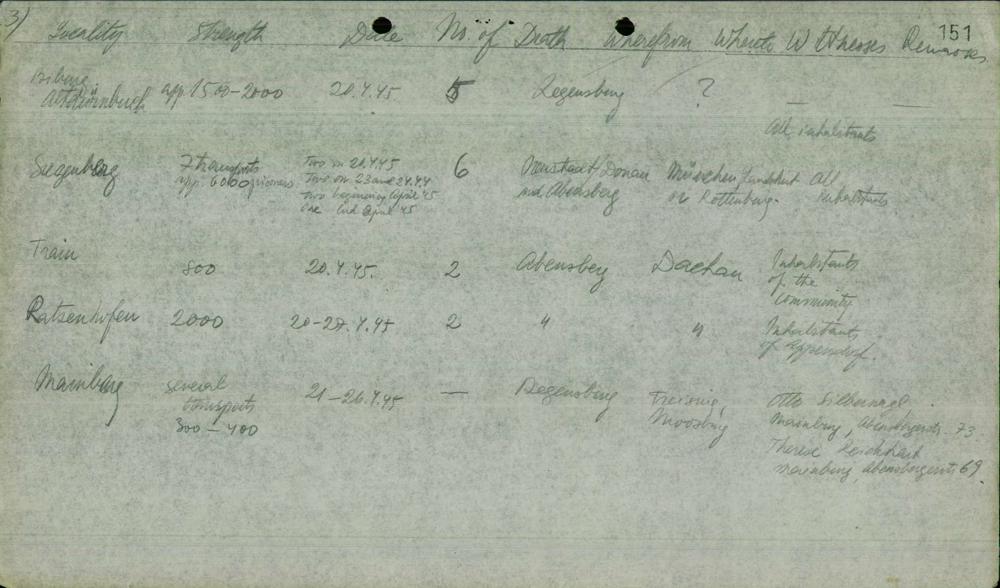 3)
151
Locality Strength Date No. of Death Wherefrom Whereto Witnesses Remarks
app. 1500-2000 20.4.45 5 Regensburg ? — —
All inhabitants
Siegenburg 7 transports app. 6000 prisoners
Two on 20.4.45
Two on 23 and 24.4.44
two beginning April 45
One End April 45
6 Neustadt/Donau and Abensberg München, Landshut or Rottenburg. All Inhabitants
Train 800 20.4.45. 2 Abensberg Dachau Inhabitants
of the
Community
Ratzenhofen 2000 20-27.4.45 2 " " Inhabitants
of
Mainburg several 21-26.4.45 — Regensburg Freising, Otto Silbernagl
transports Moosburg Mainburg, Abensbergerstr. 73.
300-400 Therese
Mainburg, Abensbergerstr. 69.